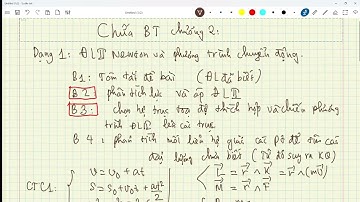 Chữa BT chương 2:
Dạng 1: ĐLII Newton và phương trình chuyển động.
B1: Tóm tắt đề bài (ĐL đã biết)
B2: phân tích lực và áp ĐLII
B3: chọn hệ trục toạ độ thích hợp và chiếu phương
trình ĐLII lên các trục
B4: phân tích mối liên hệ giữa các pt để tìm các
đại lượng chưa biết (Từ đó suy ra KQ)
CTC1: { v = v₀ + at
S = S₀ + v₀t + at²/2
L = r ∧ K = r ∧ (mv)
M = r ∧ F